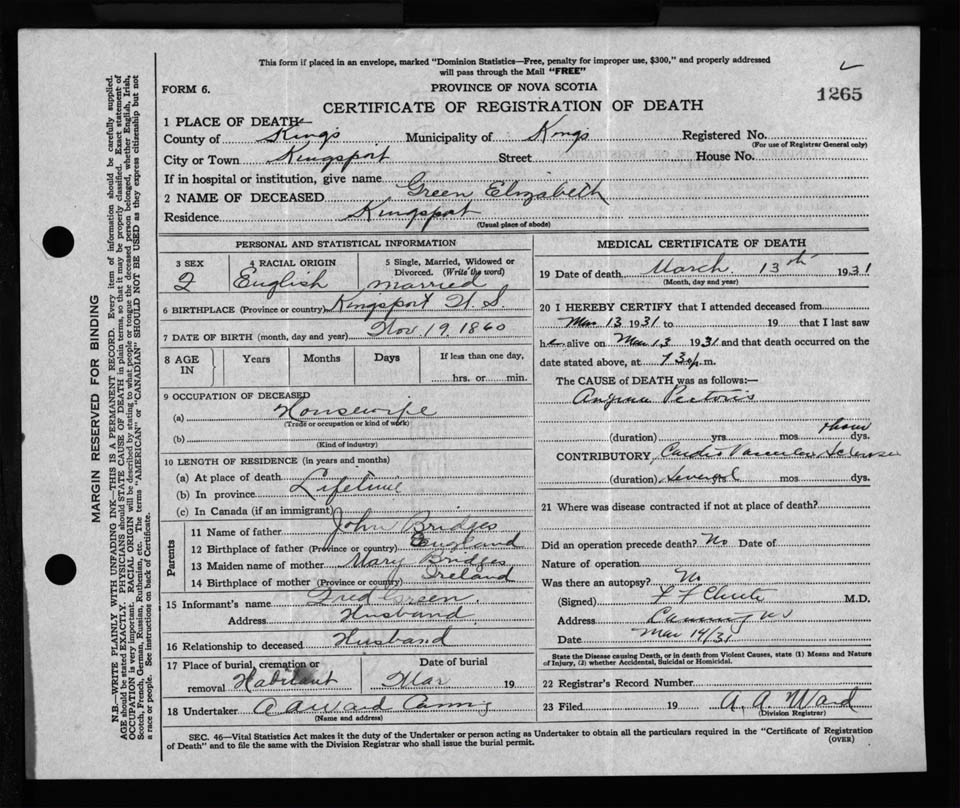 This form if placed in an envelope, marked "Dominion Statistics—Free, penalty for improper use, $300," and properly addressed
will pass through the Mail "FREE"
FORM 6.
PROVINCE OF NOVA SCOTIA
1265
CERTIFICATE OF REGISTRATION OF DEATH
1 PLACE OF DEATH
County of Kings Municipality of Kings Registered No.
(For use of Registrar General only)
City or Town Kingsport Street House No.
If in hospital or institution, give name
2 NAME OF DECEASED Green Elizabeth
Residence Kingsport
(Usual place of abode)
PERSONAL AND STATISTICAL INFORMATION
3 SEX 4 RACIAL ORIGIN 5 Single, Married, Widowed or
Divorced. (Write the word)
English married
6 BIRTHPLACE (Province or country) Kingsport N.S.
7 DATE OF BIRTH (month, day and year) Nov 19, 1860
8 AGE IN Years Months Days If less than one day,
hrs. or min.
9 OCCUPATION OF DECEASED
(a) Housewife
(Trade or occupation or kind of work)
(b)
(Kind of industry)
10 LENGTH OF RESIDENCE (in years and months)
(a) At place of death
(b) In province Lifetime
(c) In Canada (if an immigrant)
Parents
11 Name of father John Bridges
12 Birthplace of father (Province or country) England
13 Maiden name of mother Mary Bridges
14 Birthplace of mother (Province or country) Ireland
15 Informant's name Fred Green.
Address Husband
16 Relationship to deceased Husband
17 Place of burial, cremation or removal Habitant
Date of burial Mar 19
18 Undertaker A A Ward Canning
(Name and address)
MEDICAL CERTIFICATE OF DEATH
19 Date of death March 13th 1931
(Month, day and year)
20 I HEREBY CERTIFY that I attended deceased from
Mar 13 1931 to 19 that I last saw
her alive on Mar 13 1931 and that death occurred on the
date stated above, at 730 p. m.
The CAUSE of DEATH was as follows:—
Angina Pectoris
(duration) yrs mos dys.
CONTRIBUTORY Cardio Vascular Sclerosis
(duration) several mos dys.
21 Where was disease contracted if not at place of death?
Did an operation precede death? No Date of
Nature of operation
Was there an autopsy? No
(Signed) F F Chute M.D.
Address Canning NS
Date Mar 14/31
State the Disease causing Death, or in death from Violent Causes, state (1) Means and Nature
of Injury, (2) whether Accidental, Suicidal or Homicidal.
22 Registrar's Record Number
23 Filed 19 A. A. Ward
(Division Registrar)
SEC. 46—Vital Statistics Act makes it the duty of the Undertaker or person acting as Undertaker to obtain all the particulars required in the "Certificate of Registration
of Death" and to file the same with the Division Registrar who shall issue the burial permit.
(OVER)
MARGIN RESERVED FOR BINDING
N.B.—WRITE PLAINLY WITH UNFADING INK—THIS IS A PERMANENT RECORD. Every item of information should be carefully supplied.
AGE should be stated EXACTLY. PHYSICIANS should STATE CAUSE OF DEATH in plain terms, so that it may be properly classified. Exact statement of
OCCUPATION is very important. RACIAL ORIGIN will be described by stating to what people or tongue the deceased person belonged, whether English, Irish,
Scotch, French, German, Russian, Ruthenian, etc. The terms "AMERICAN" or "CANADIAN" SHOULD NOT BE USED as they express citizenship but not
a race or people. See instructions on back of Certificate.